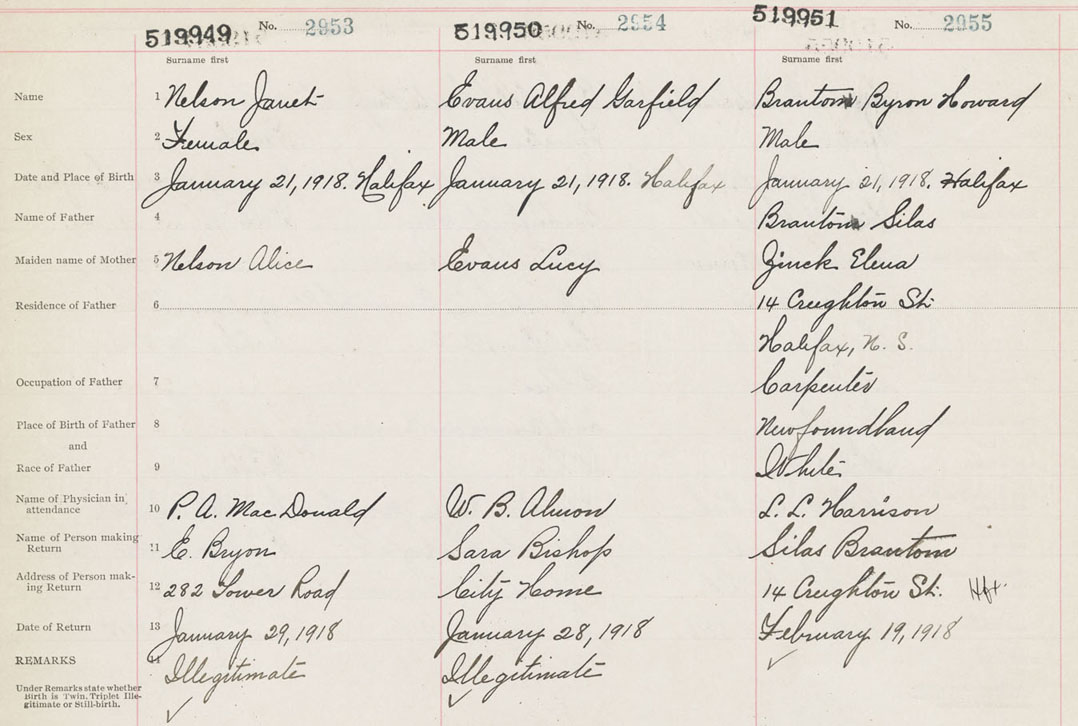 519949 No. 2953 519950 No. 2954 519951 No. 2955
Surname first Surname first Surname first
Name 1 Nelson Janet Evans Alfred Garfield Brantom Byron Howard
Sex 2 Female Male Male
Date and Place of Birth 3 January 21, 1918. Halifax January 21, 1918. Halifax January 21, 1918. Halifax
Name of Father 4 Brantom Silas
Maiden name of Mother 5 Nelson Alice Evans Lucy Zinck Elena
Residence of Father 6 14 Creighton St.
Halifax, N. S.
Occupation of Father 7 Carpenter
Place of Birth of Father 8 Newfoundland
and
Race of Father 9 White
Name of Physician in attendance 10 P. A. MacDonald W. B. Almon L. L. Harrison
Name of Person making Return 11 E. Bryon Sara Bishop Silas Brantom
Address of Person mak-ing Return 12 282 Tower Road City Home 14 Creighton St. Hfx.
Date of Return 13 January 29, 1918 January 28, 1918 February 19, 1918
REMARKS 14 Illegitimate Illegitimate
Under Remarks state whether
Birth is Twin, Triplet Ille-
gitimate or Still-birth.